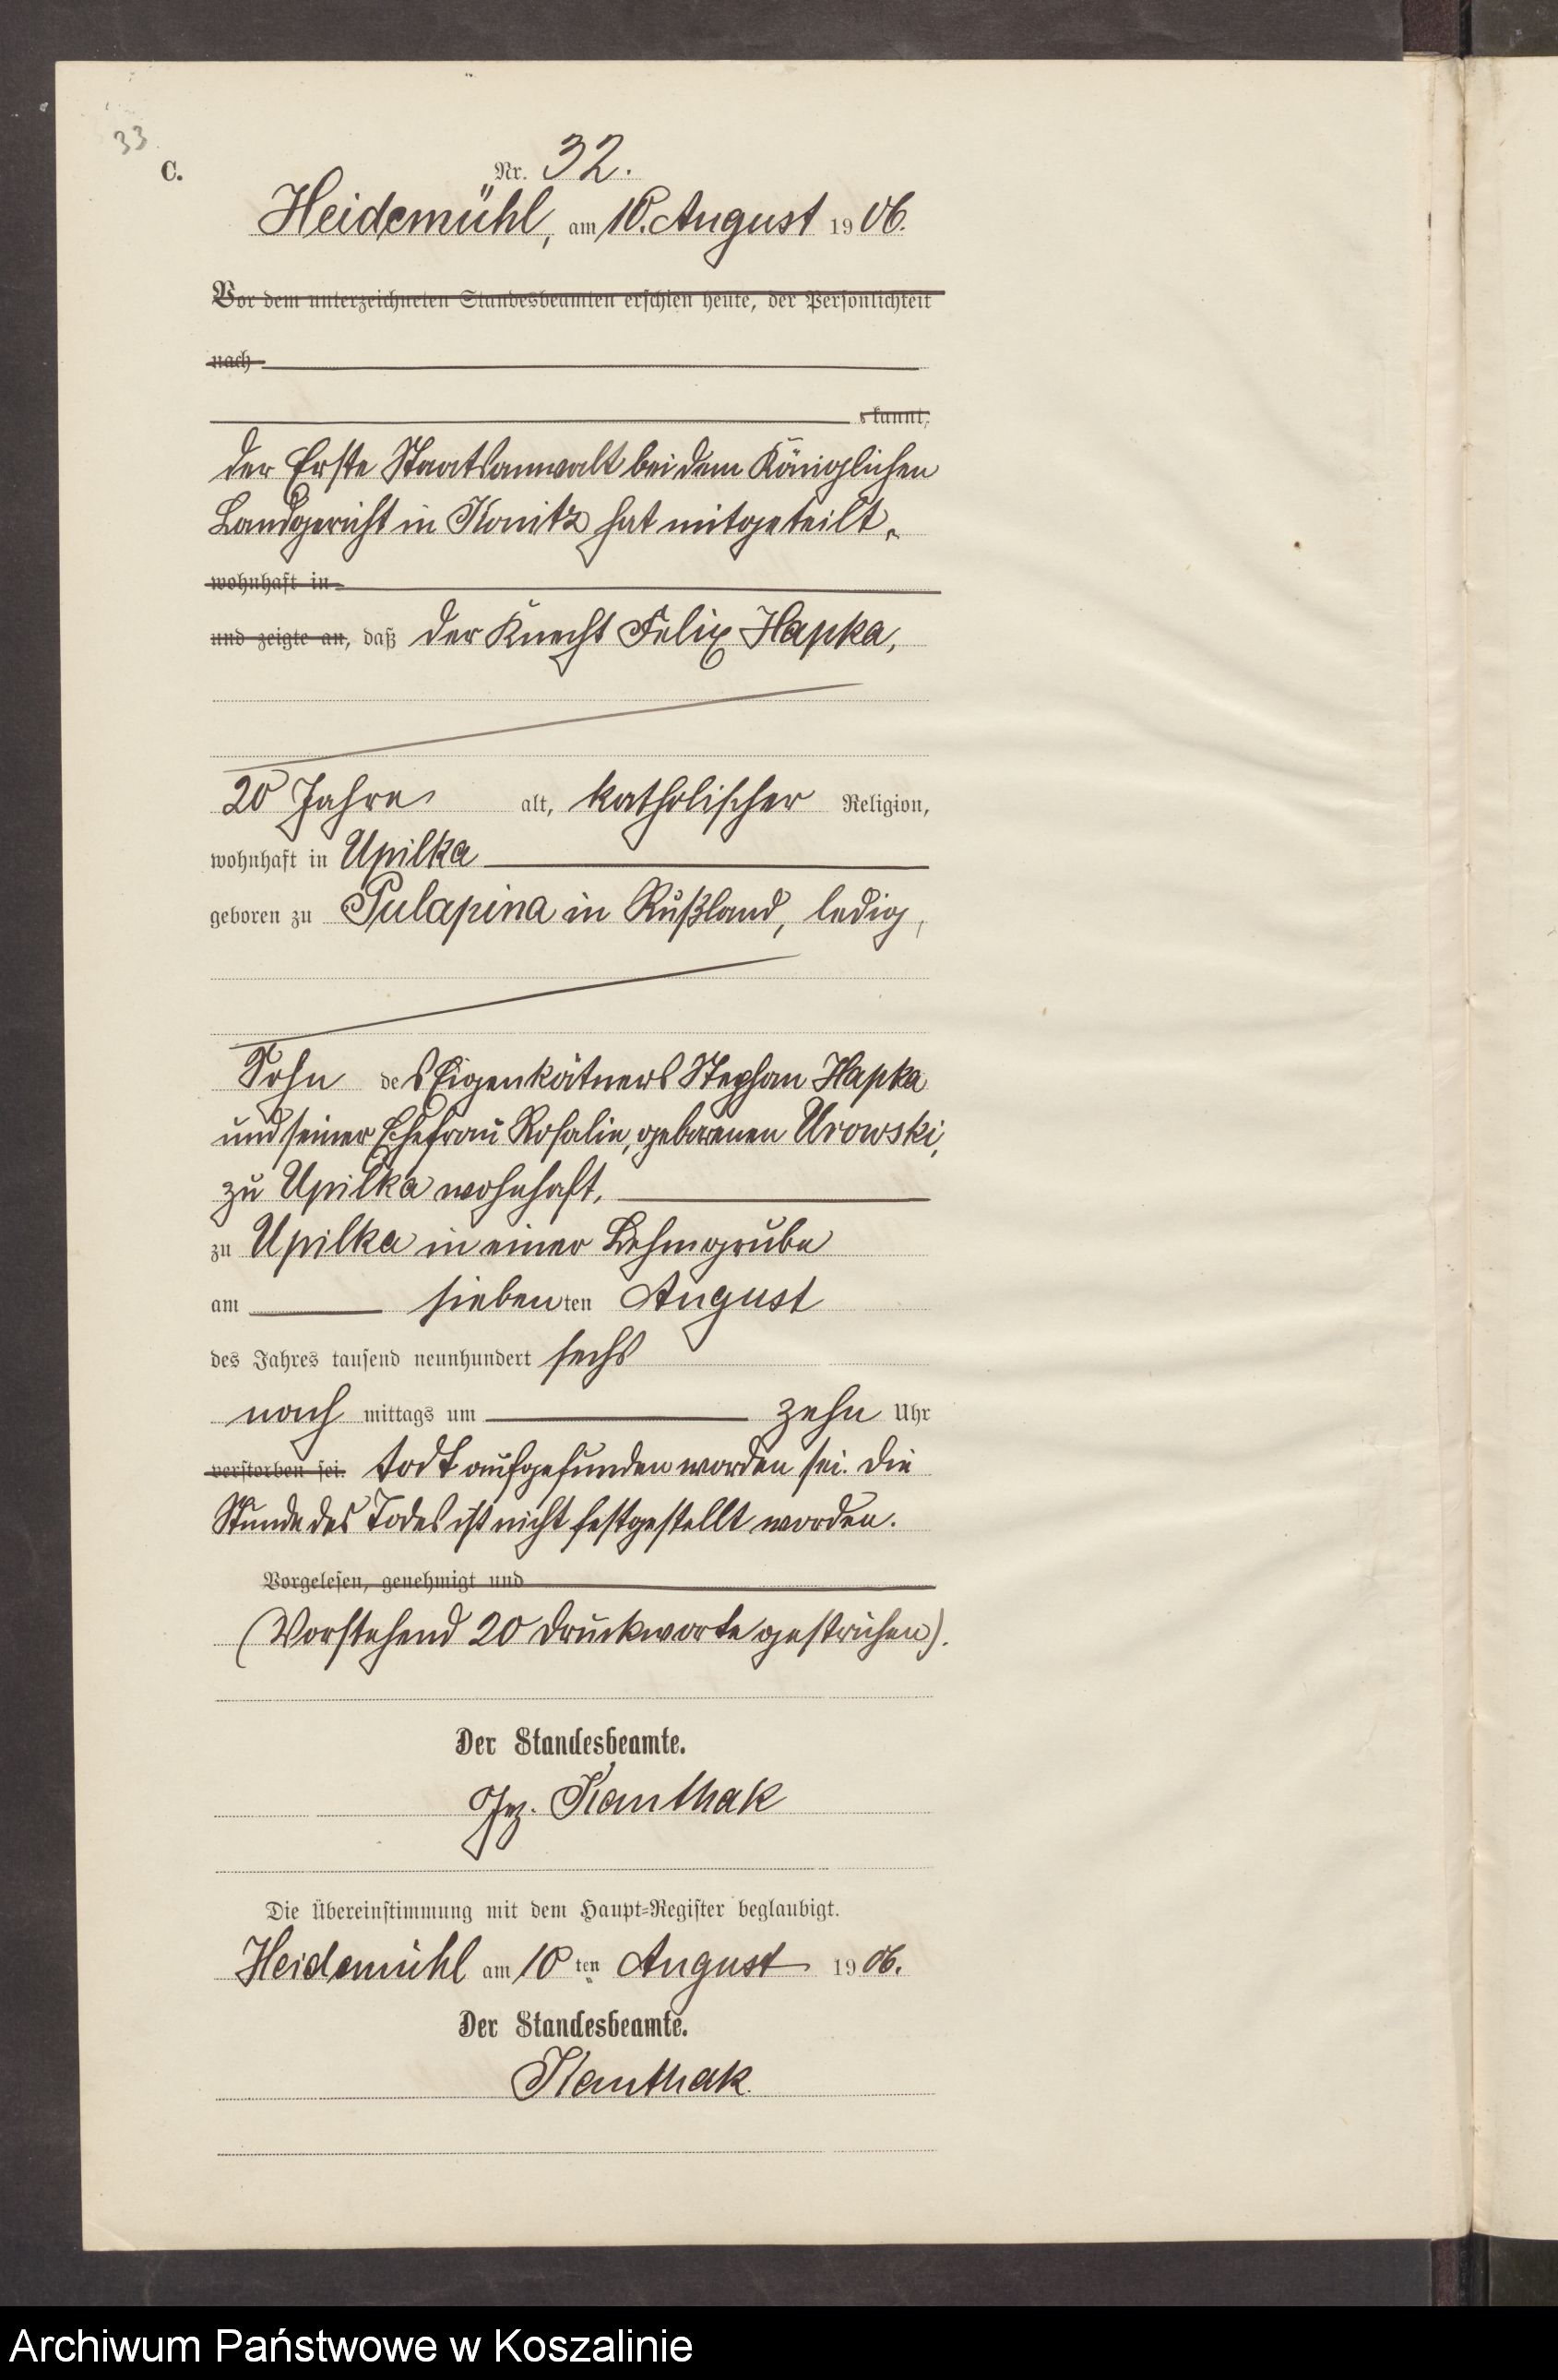 33
C.
Nr. 32.
Heidemühl, am 10. August 1906.
Vor dem unterzeichneten Standesbeamten erschien heute, der Persönlichkeit
nach
kannt,
der Erste Staatsanwalt bei dem Königlichen
Landgericht in Konitz hat mitgeteilt,
wohnhaft in
und zeigte an, daß der Knecht Felix Hapka,
20 Jahre alt, katholischer Religion,
wohnhaft in Upilka
geboren zu Pulapina in Rußland, ledig,
Sohn des Eigenkätners Stephan Hapka
und seiner Ehefrau Rosalie, geborenen Urowski,
zu Upilka wohnhaft,
zu Upilka in einer Lehmgrube
am siebenten August
des Jahres tausend neunhundert sechs
nach mittags um zehn Uhr
verstorben sei. todt aufgefunden worden sei. Die
Stunde des Todes ist nicht festgestellt worden.
Vorgelesen, genehmigt und
(Vorstehend 20 Druckworte gestrichen).
Der Standesbeamte.
Gez. Kanthak
Die Übereinstimmung mit dem Haupt-Register beglaubigt.
Heidemühl am 10ten August 1906.
Der Standesbeamte.
Kanthak.
Archiwum Państwowe w Koszalinie